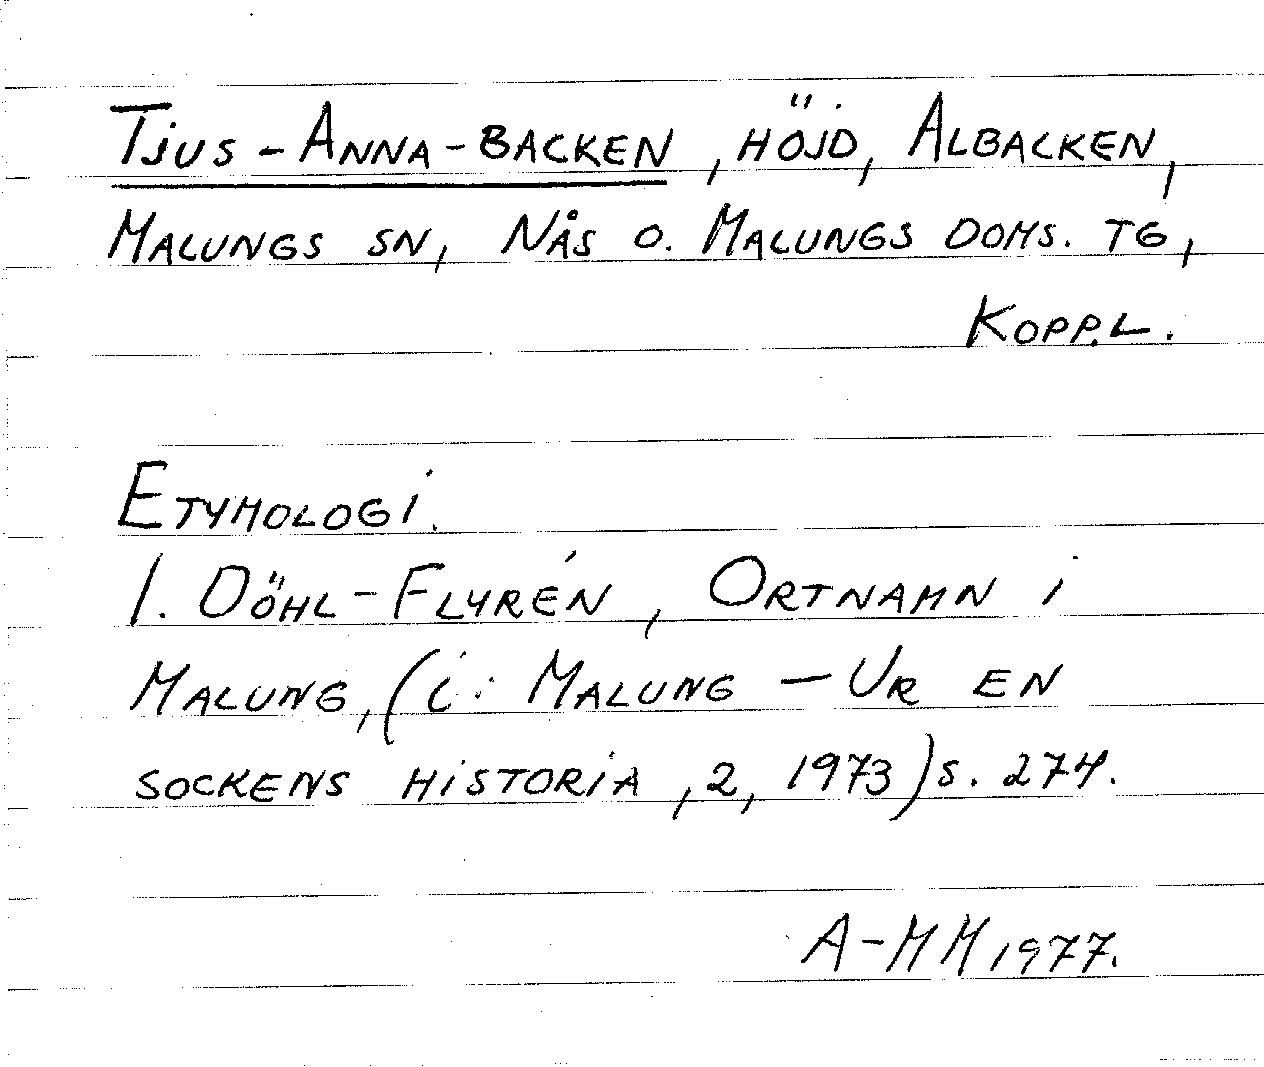 Tjus-Anna-backen, höjd, Albacken,
Malungs sn, Nås o. Malungs doms. tg,
Kopp.l.
Etymologi.
I. Döhl-Flyrén, Ortnamn i
Malung, (i: Malung – Ur en
sockens historia, 2, 1973) s. 274.
A-MM 1977.